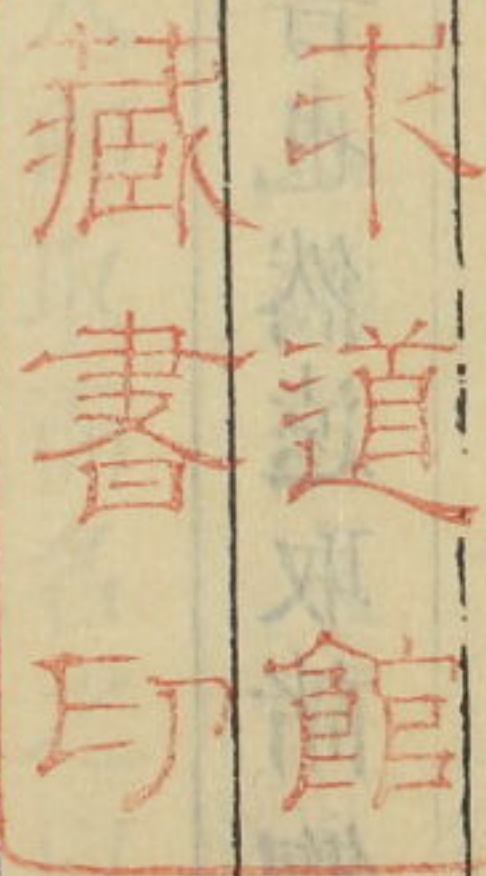 求道館
藏書印